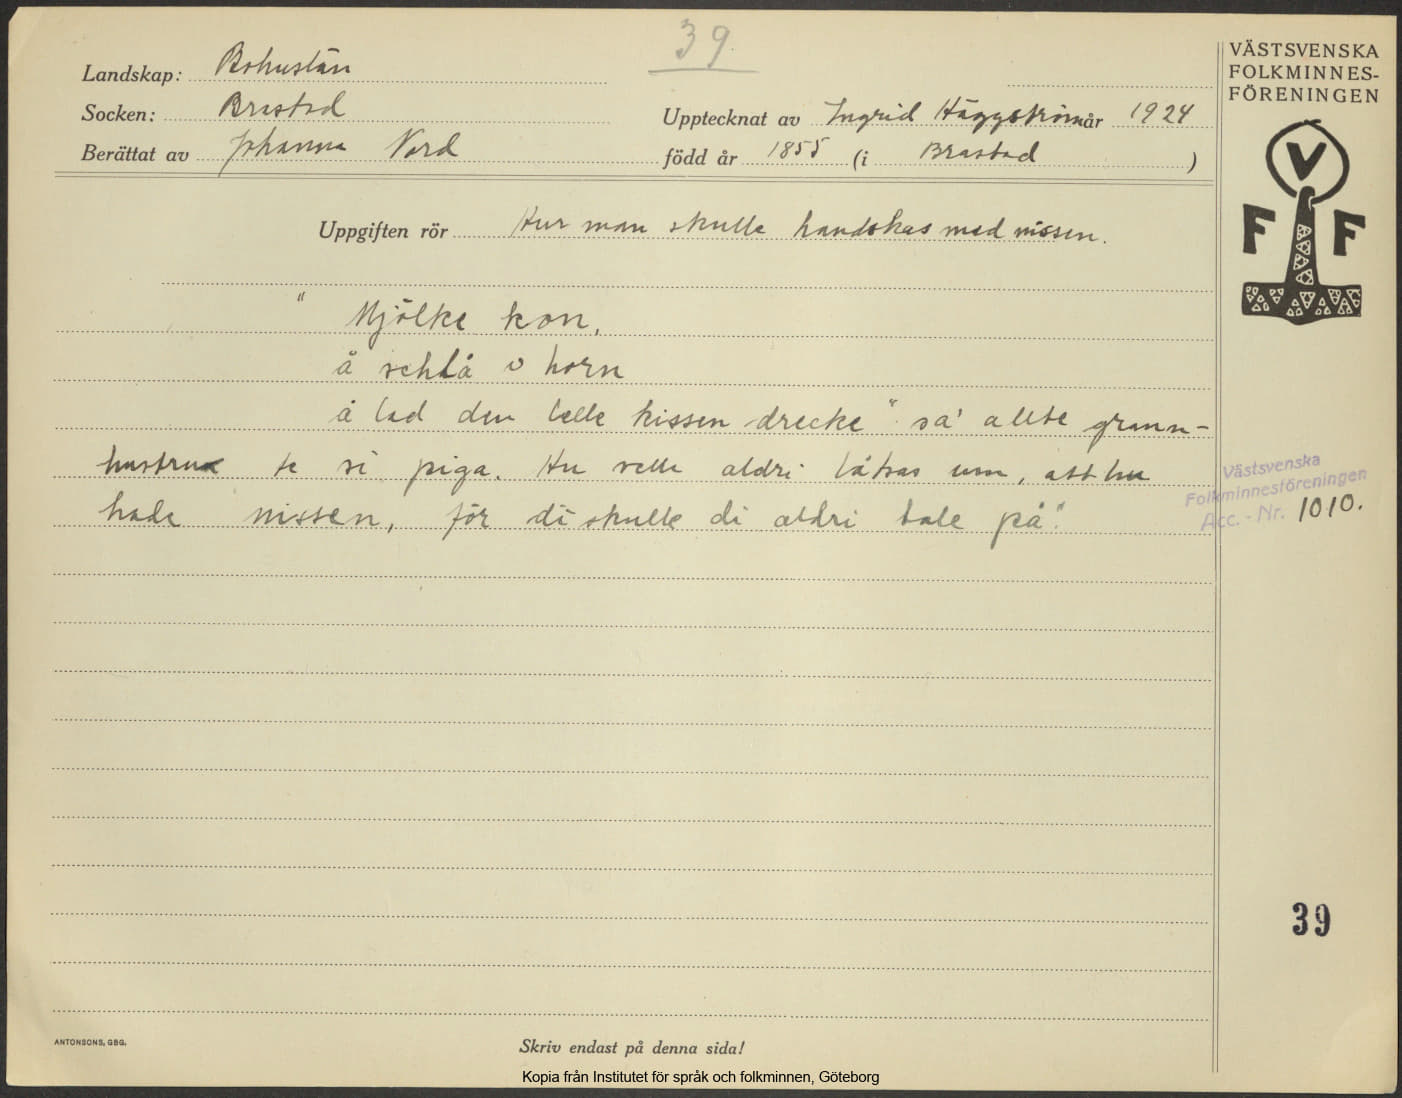 39
Landskap: Bohuslän
Socken: Brastad
Berättat av Johanna Nord
Upptecknat av Ingrid Häggström år 1924
född år 1855 (i Brastad )
Uppgiften rör Hur man skulle handskas med nissen.
" Mjölke kon,
å schlå i horn
å lad den lelle kissen drecke" sa' allte grann-
hustrua te si piga. Hu velle aldri låtsas um, att hu
hade nissen, för di skulle di aldri tale på."
ANTONSONS, GBG.
Skriv endast på denna sida!
Kopia från Institutet för språk och folkminnen, Göteborg
VÄSTSVENSKA
FOLKMINNES-
FÖRENINGEN
V
F F
Västsvenska
Folkminnesföreningen
Acc.-Nr. 1010.
39